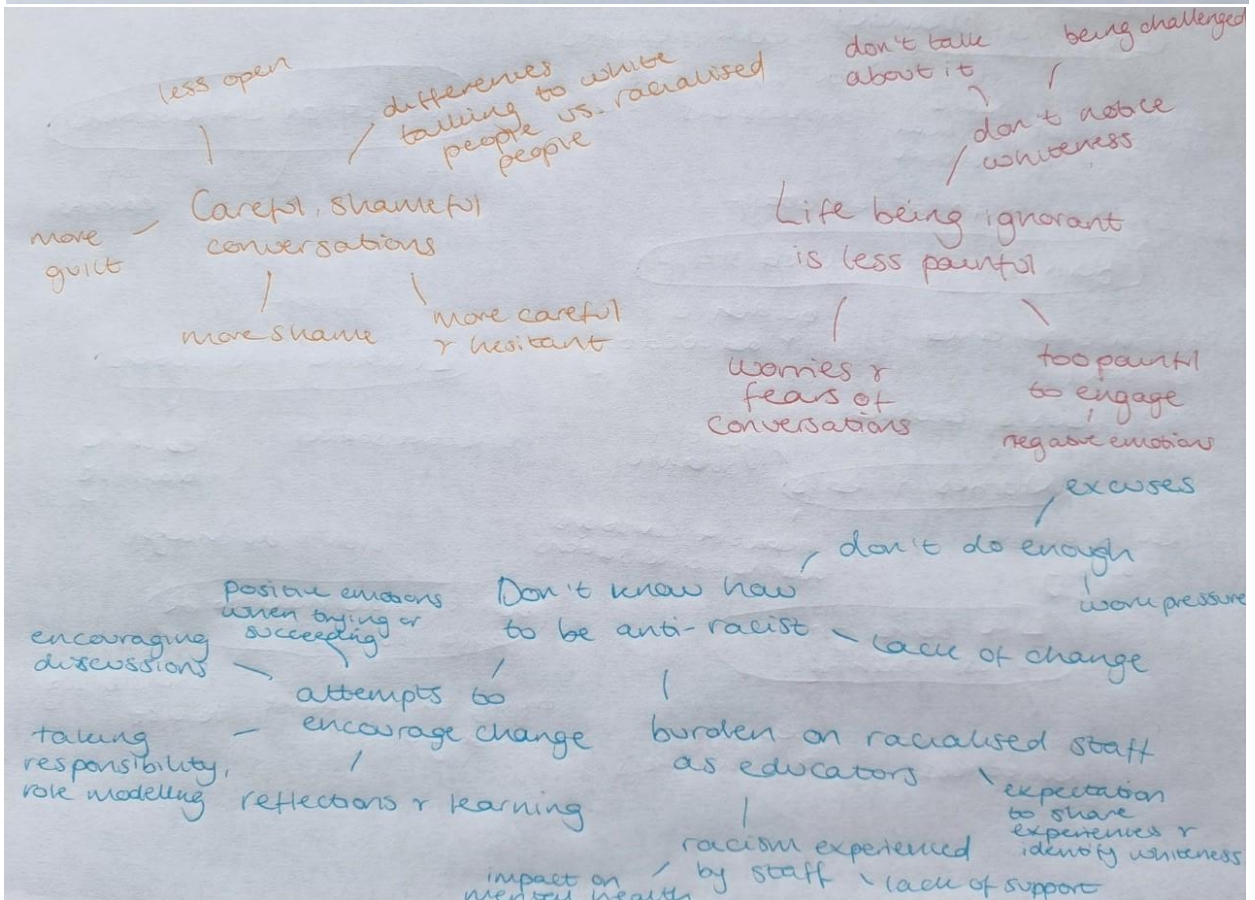 less open
differences
talking to white
people vs. racialised
people
Careful, shameful
conversations
more
guilt
more shame
more careful
& hesitant
don't talk
about it
being challenged
don't notice
whiteness
Life being ignorant
is less painful
worries &
fears of
conversations
too painful
to engage
negative emotions
excuses
don't do enough
work pressure
Don't know how
to be anti-racist
lack of change
positive emotions
when trying or
succeeding
encouraging
discussions
attempts to
encourage change
taking
responsibility,
role modelling
reflections & learning
burden on racialised staff
as educators
expectation
to share
experiences &
identify whiteness
racism experienced
by staff
lack of support
impact on
mental health